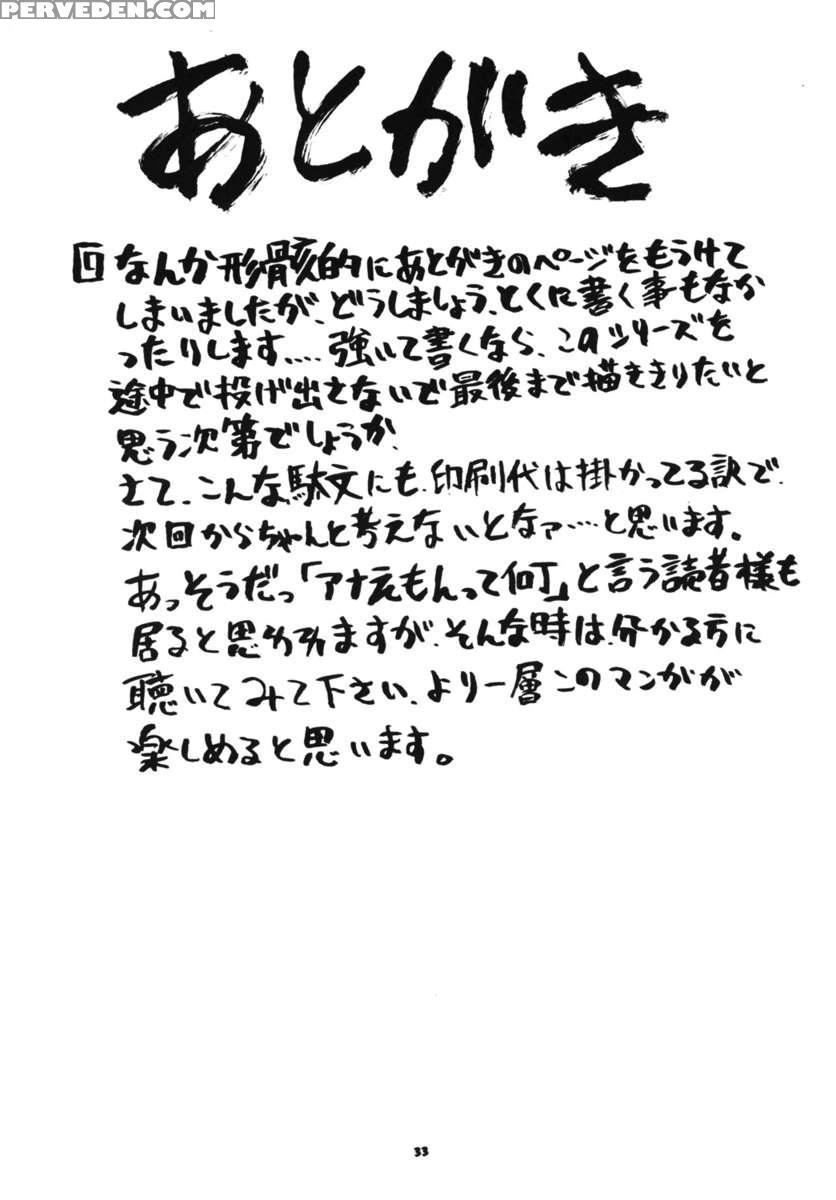 PERVEDEN.COM
あとがき
回なんか形骸的にあとがきのページをもうけて
しまいましたが、どうしましょう、とくに書く事もなか
ったりします.... 強いて書くなら、このシリーズを
途中で投げ出さないで最後まで描ききりたいと
思う次第でしょうか、
さて、こんな駄文にも、印刷代は掛かってる訳で、
次回からちゃんと考えないとなァ…と思います。
あっそうだっ「アナえもんって何」と言う読者様も
居ると思われますが、そんな時は、分かる方に
聴いてみて下さい、より一層このマンガが
楽しめると思います。
33